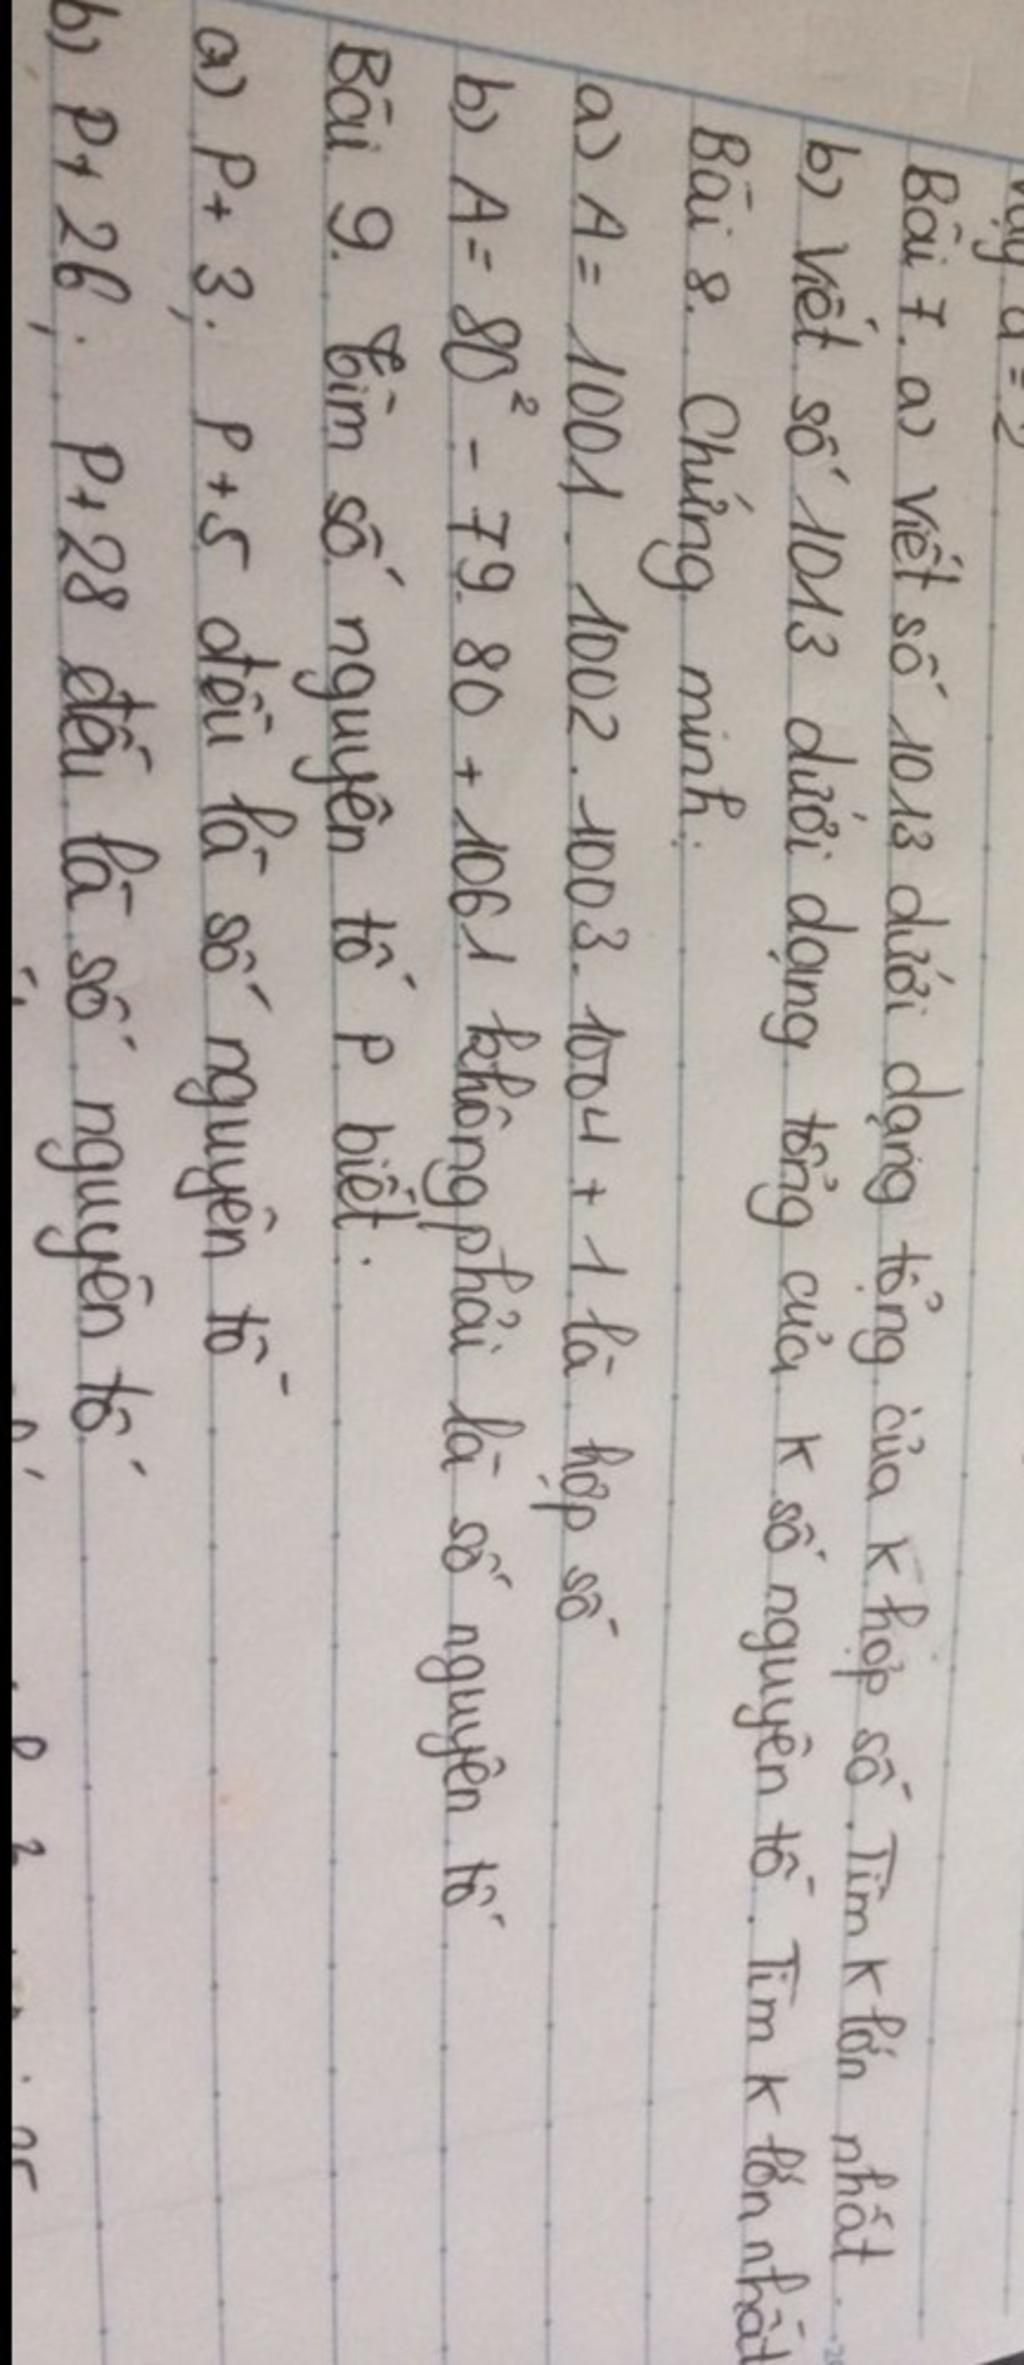 Bài 7. a) Viết số 1013 dưới dạng tổng của K hợp số. Tìm K lớn nhất.
b) Viết số 1013 dưới dạng tổng của K số nguyên tố. Tìm K lớn nhất
Bài 8. Chứng minh:
a) A = 1001. 1002. 1003. 1004 + 1 là hợp số
b) A = 80² - 79.80 + 1061 không phải là số nguyên tố
Bài 9. Tìm số nguyên tố P biết:
a) P+ 3; P+5 đều là số nguyên tố
b) P+ 26; P+28 đều là số nguyên tố